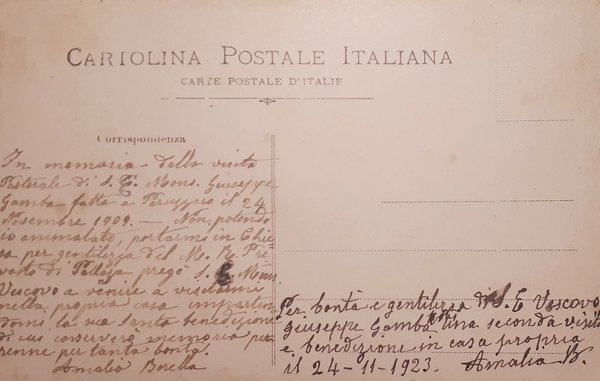 CARTOLINA POSTALE ITALIANA
CARTE POSTALE D'ITALIE
Corrispondenza
In memoria della visita
Pastorale di S. E. Mons. Giuseppe
Gamba fatta a il 24
Novembre 1909. — Non potendo
io ammalata, portarmi in Chie
sa per gentilezza del M. R. Pre
vosto di pregò S. E. Mons.
Vescovo a venire a visitarmi
nella propria casa impartin
domi la sua Santa benedizione
di cui conservero memoria pe
renne per tanta bontà.
Amalia Borella
Per bontà e gentilezza di S. E Vescovo
Giuseppe Gamba una seconda visita
e benedizione in casa propria
il 24-11-1923. Amalia B.